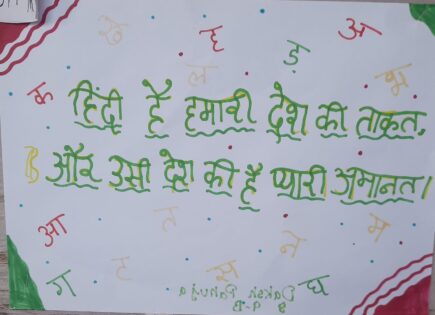 ह ड़ अ
ल
क
हिंदी है हमारी देश की ताकत,
और उसी देश की है प्यारी अमानत।
आ त म
ग ट स घ
Daksh Pahuja